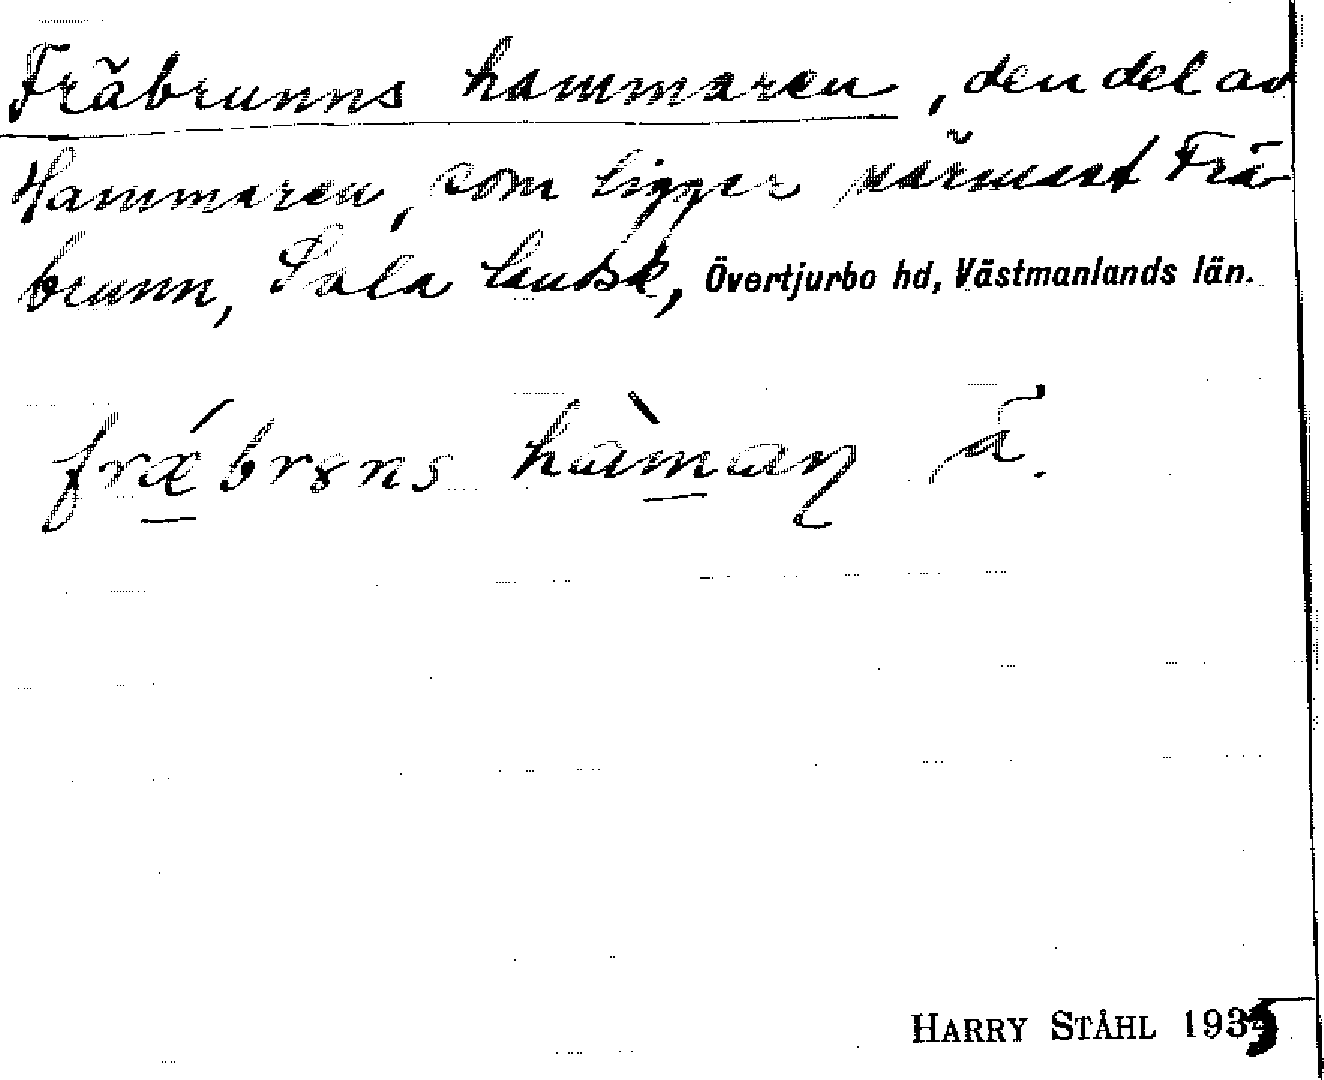 Fräbrunns hammaren, den del av
Hammaren, som ligger närmast Frä-
brunn, Sala landsk, Övertjurbo hd, Västmanlands län.
frǽbrɤns hàman
HARRY STÅHL 1935